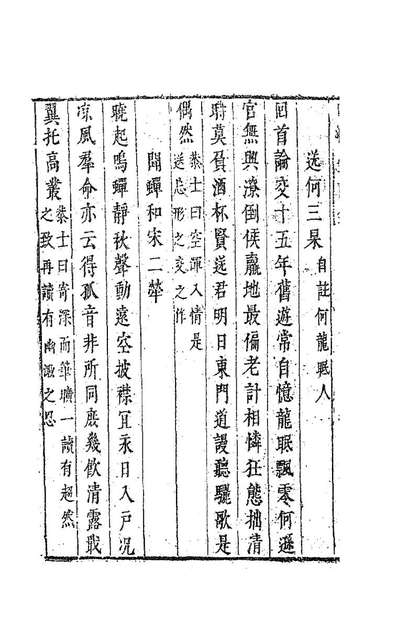 送何三杲自註何龍眠人
回首論交十五年舊遊常自憶龍眠飄零何遜
官無興潦倒侯嬴地最偏老計相憐狂態拙清
時莫負酒杯賢送君明日東門道謾聽驪歌是
偶然恭士曰空渾入情是
送忘形之交之作
聞蟬和宋二犖
曉起鳴蟬靜秋聲動遠空披襟宜永日入戶況
凉風羣命亦云得孤音非所同庶幾飲清露戢
翼托高叢恭士曰寄深而筆曠一讀有超然
之致再讀有幽
之